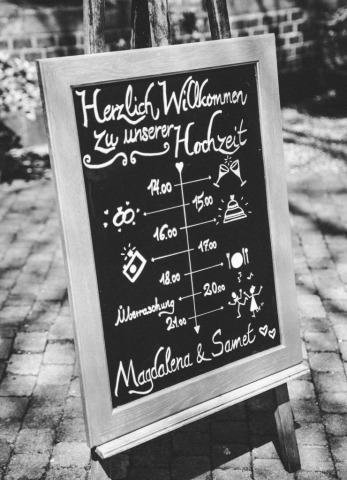 Herzlich Willkommen
zu unserer Hochzeit
14.00
15.00
16.00
17.00
18.00
20.00
Überraschung
21.00
Magdalena & Samet